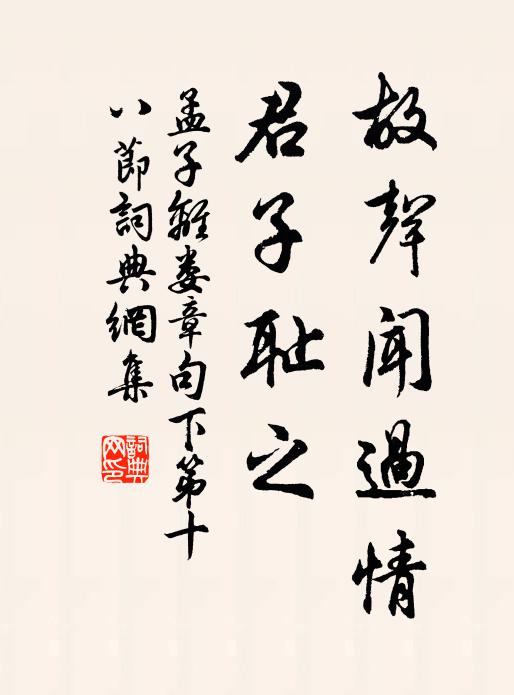 故聲聞過情
君子耻之
孟子離娄章句下第十
八節詞典網集
詞典网印